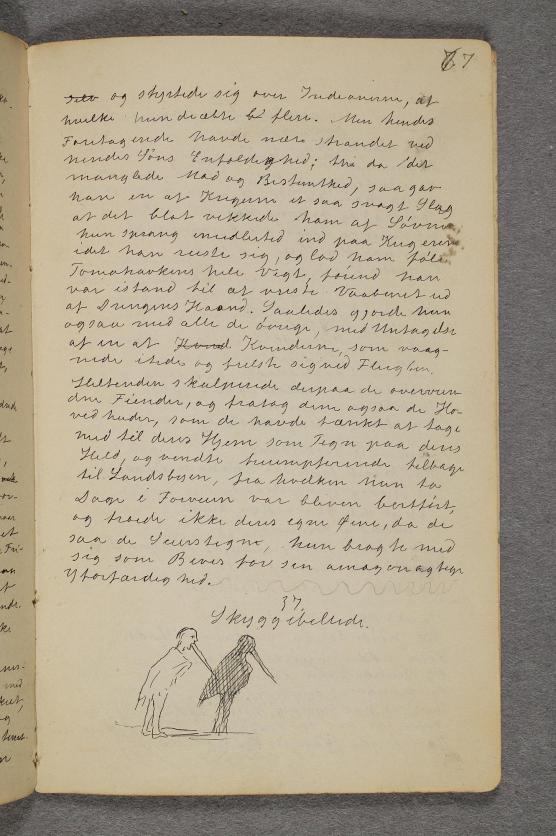 77
og styrtede sig over Indianerne, af
hvilke hun dræbte flere. Men hendes
Foretagende havde nær strandet ved
hendes Söns Enfoldighed; thi da det
manglede Mod og Bestemthed, saa gav
han en af Krigerne et saa svagt Slag
at det blot vækkede ham af Sövne
hun sprang imidlertid ind paa Krigeren
idet han reiste sig, og lod ham föle
Tomahavkens hele Vægt, förend han
var istand til at vriste Vaabenet ud
af Drengens Haand. Saaledes gjorde hun
ogsaa med alle de övrige, med Undtagelse
af en af Hvend Kvinderne, som vaag-
nede itide og frelste sig ved Flugten.
Heltinden skalperede derpaa de overvun
dne Fiender, og fratog dem ogsaa de Ho-
vedhuder, som de havde tænkt at tage
med til deres Hjem som Tegn paa deres
Held, og vendte triumpferende tilbage
til Landsbyen, fra hvilken hun to
Dage i Forveien var bleven bortfört,
og troede ikke deres egne Øine, da de
saa de Seierstegn, hun bragte med
sig som Bevis for sin amazonagtige
Uforfærdethed.
37.
Skyggebilled.